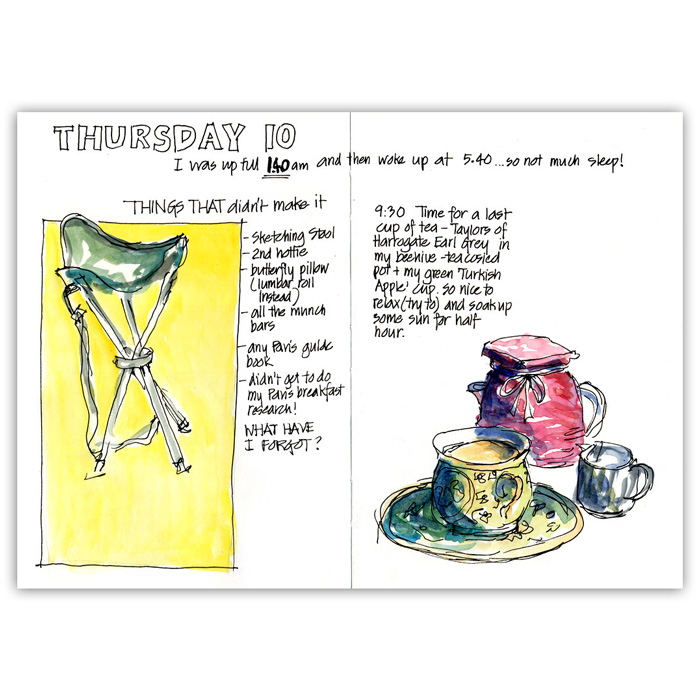 THURSDAY 10
I was up till 1.40 am and then woke up at 5.40...so not much sleep!
THINGS THAT didn't make it
- Sketching Stool
- 2nd hottie
- butterfly pillow
(lumbar roll
instead)
- all the munch
bars
- any Paris guide
book
- didn't get to do
my Paris breakfast
research!
WHAT HAVE
I FORGOT?
9:30 Time for a last
cup of tea - Taylors of
Harrogate Earl Grey in
my beehive -teacosied
pot + my green 'Turkish
Apple' cup. so nice to
relax (try to) and soak up
some sun for half
hour.